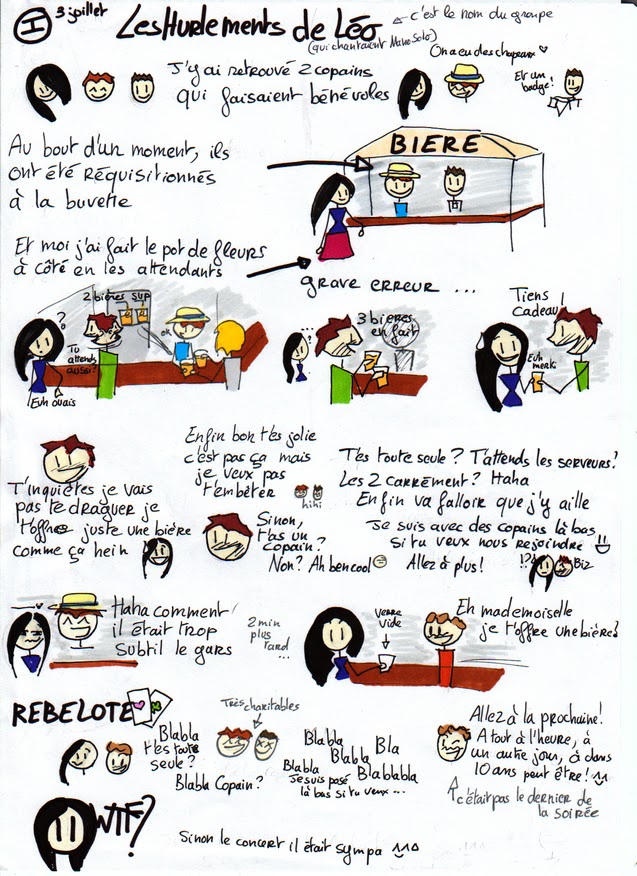 I
3 juillet
Les Hurlements de Léo
c'est le nom du groupe
(qui chantaient Mano Solo)
On a eu des chapeaux
Et un
badge!
J'y ai retrouvé 2 copains
qui faisaient bénévoles
Au bout d'un moment, ils
ont été réquisitionnés
à la buvette
BIERE
Et moi j'ai fait le pot de fleurs
à côté en les attendants
grave erreur ...
2 bières SVP
?
ok
Tu
attends
aussi?
Euh ouais
...?
3 bieres
en fait
Tiens
Cadeau!
Euh
merki
T'inquiètes je vais
pas te draguer je
t'offre juste une bière
comme ça hein
Enfin bon t'es jolie
c'est pas ça mais
je veux pas
t'embêter
hihi
Sinon,
t'as un
copain?
Non? Ah ben cool
T'es toute seule? T'attends les serveurs?
Les 2 carrément? Haha
Enfin va falloir que j'y aille
Je suis avec des copains là bas
si tu veux nous rejoindre
Allez à plus!
!?
Biz
Haha comment
il était trop
subtil le gars
2 min
plus
tard
...
Verre
vide
Eh mademoiselle
je t'offre une bière?
REBELOTE
Blabla
t'es toute
seule?
Blabla Copain?
Très charitables
Blabla
Blabla
Bla
Blabla
Blablabla
Je suis posé
là bas si tu veux ...
Allez à la prochaine!
A tout à l'heure, à
un autre jour, à dans
10 ans peut être! ^^
c'était pas le dernier de
la soirée
WTF?
Sinon le concert il était sympa ^^